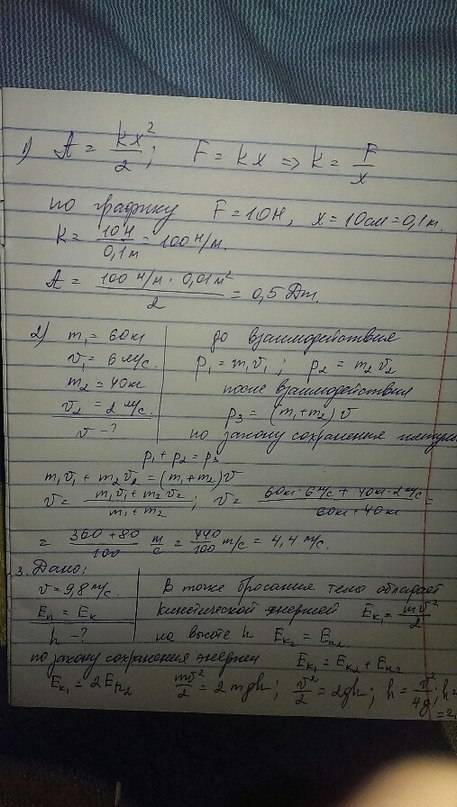 1) A = kx²/2; F = kx ⇒ k = F/x
по графику F = 10Н, x = 10см = 0,1м.
k = 10Н/0,1м = 100 Н/м.
A = 100 Н/м · 0,01м²/2 = 0,5 Дж.
2) m₁ = 60кг до взаимодействия
v₁ = 6 м/с. p₁ = m₁v₁; p₂ = m₂v₂
m₂ = 40кг после взаимодействия
v₂ = 2 м/с. p₃ = (m₁+m₂)v
v - ? по закону сохранения
p₁ + p₂ = p₃
m₁v₁ + m₂v₂ = (m₁+m₂)v
v = m₁v₁ + m₂v₂/m₁ + m₂; v = 60кг·6м/с + 40кг·2м/с/60кг + 40кг =
= 360 + 80/100 м/с = 440/100 м/с = 4,4 м/с.
3. Дано:
v = 9,8 м/с. В точке бросания тело обладает
Eп = Eк кинетической энергией Eк₁ = mv²/2
h - ? на высоте h Eк₂ = Eп₂
по закону сохранения энергии Eк₁ = Eк₂ + Eп₂
Eк₁ = 2Eп₂ mv²/2 = 2mgh; v²/2 = 2gh; h = v²/4g; h=